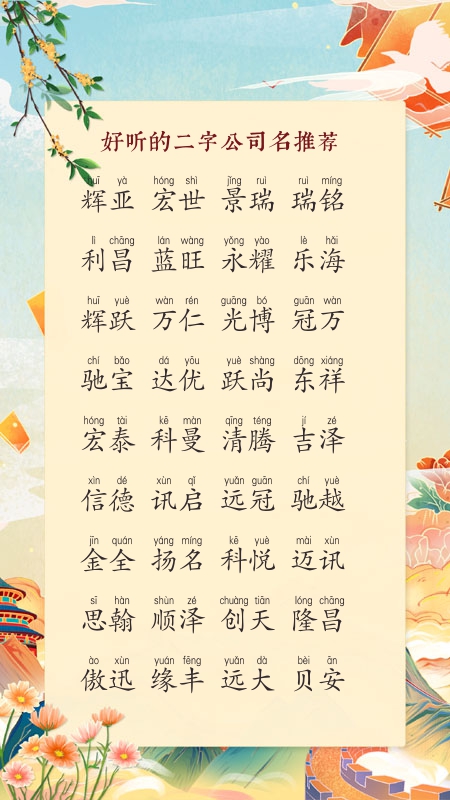 好听的二字公司名推荐
huī yà hóng shì jǐng ruì ruì míng
辉亚 宏世 景瑞 瑞铭
lì chāng lán wàng yǒng yào lè hǎi
利昌 蓝旺 永耀 乐海
huī yuè wàn rén guāng bó guān wàn
辉跃 万仁 光博 冠万
chí bǎo dá yōu yuè shàng dōng xiáng
驰宝 达优 跃尚 东祥
hóng tài kē màn qīng téng jí zé
宏泰 科曼 清腾 吉泽
xìn dé xùn qǐ yuǎn guān chí yuè
信德 讯启 远冠 驰越
jīn quán yáng míng kē yuè mài xùn
金全 扬名 科悦 迈讯
sī hàn shùn zé chuàng tiān lóng chāng
思翰 顺泽 创天 隆昌
ào xùn yuán fēng yuǎn dà bèi ān
傲迅 缘丰 远大 贝安